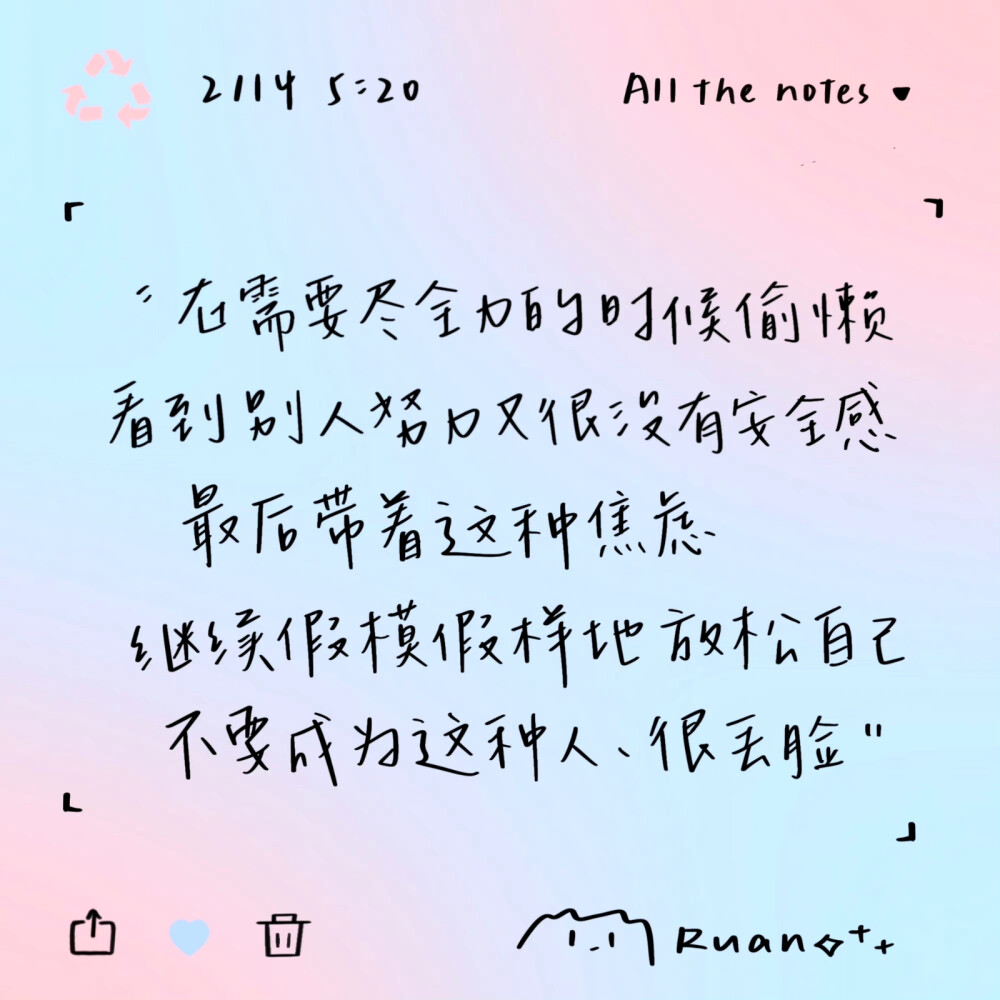 2114 5:20
All the notes
"在需要尽全力的时候偷懒
看到别人努力又很没有安全感
最后带着这种焦虑
继续假模假样地放松自己
不要成为这种人、很丢脸"
Ruan